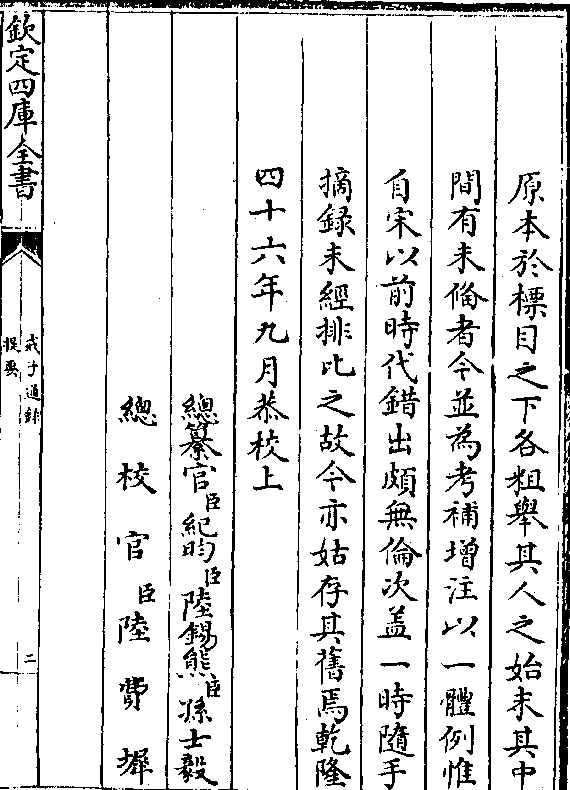 原本於標目之下各粗舉其人之始末其中
間有未偹者今並為考補增注以一體例惟
自宋以前時代錯出頗無倫次盖一時隨手
摘録未經排比之故今亦姑存其舊焉乾隆
四十六年九月恭校上
總纂官臣紀昀臣陸錫熊臣孫士毅
總校官臣陸費墀
欽定四庫全書
戒子通録
提要
二